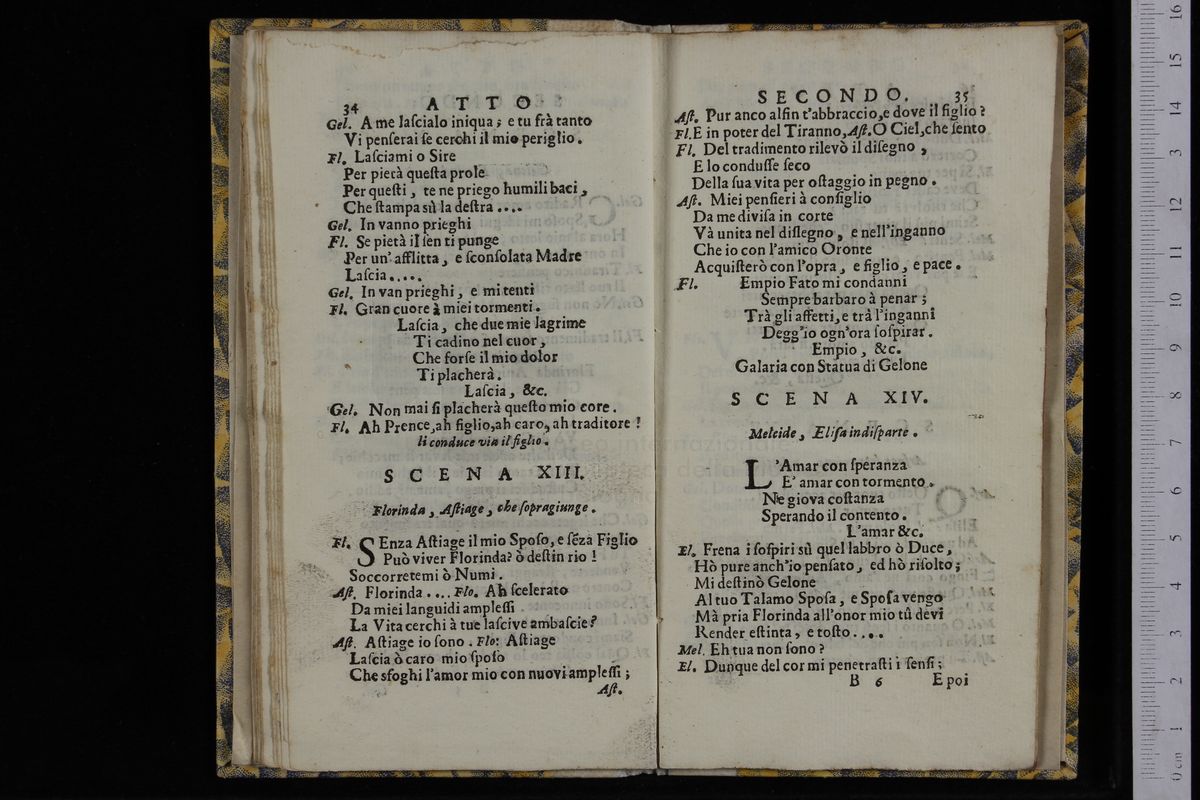 34 ATTO
Gel. A me laſcialo iniqua; e tu frà tanto
Vi penſerai ſe cerchi il mio periglio.
Fl. Laſciami o Sire
Per pietà queſta prole
Per queſti, te ne priego humili baci,
Che ſtampa sù la deſtra ....
Gel. In vanno prieghi
Fl. Se pietà il ſen ti punge
Per un' afflitta, e ſconſolata Madre
Laſcia.....
Gel. In van prieghi, e mi tenti
Fl. Gran cuore à miei tormenti.
Laſcia, che due mie lagrime
Ti cadino nel cuor,
Che forſe il mio dolor
Ti placherà.
Laſcia, &c.
Gel. Non mai ſi placherà queſto mio core.
Fl. Ah Prence, ah figlio, ah caro, ah traditore!
li conduce via il figlio.
SCENA XIII.
Florinda, Aſtiage, che ſopragiunge.
Fl. SEnza Aſtiage il mio Spoſo, e ſẽza Figlio
Può viver Florinda? ò deſtin rio!
Soccorretemi ò Numi.
Aſt. Florinda .... Flo. Ah ſcelerato
Da miei languidi ampleſſi
La Vita cerchi à tue laſcive ambaſcie?
Aſt. Aſtiage io ſono. Flo: Aſtiage
Laſcia ò caro mio ſpoſo
Che sfoghi l'amor mio con nuovi ampleſſi;
Aſt.
SECONDO. 35
Aſt. Pur anco alfin t'abbraccio, e dove il figlio?
Fl. E in poter del Tiranno, Aſt. O Ciel, che ſento
Fl. Del tradimento rilevò il diſegno,
E lo conduſſe ſeco
Della ſua vita per oſtaggio in pegno.
Aſt. Miei penſieri à conſiglio
Da me diviſa in corte
Và unita nel diſſegno, e nell'inganno
Che io con l'amico Oronte
Acquiſterò con l'opra, e figlio, e pace.
Fl. Empio Fato mi condanni
Sempre barbaro à penar;
Trà gli affetti, e trà l'inganni
Degg'io ogn'ora ſoſpirar.
Empio, &c.
Galaria con Statua di Gelone
SCENA XIV.
Melcide, Eliſa indiſparte.
L'Amar con ſperanza
E' amar con tormento.
Ne giova coſtanza
Sperando il contento.
L'amar &c.
El. Frena i ſoſpiri sù quel labbro ò Duce,
Hò pure anch'io penſato, ed hò riſolto;
Mi deſtinò Gelone
Al tuo Talamo Spoſa, e Spoſa vengo
Mà pria Florinda all'onor mio tù devi
Render eſtinta, e toſto....
Mel. Eh tua non ſono?
El. Dunque del cor mi penetraſti i ſenſi;
B 6 E poi